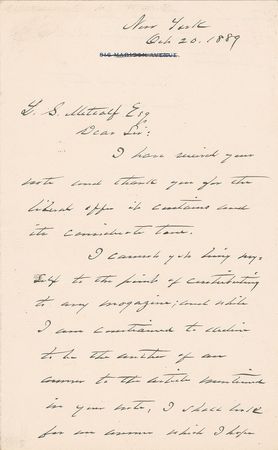 New York
Oct. 20. 1889
816 MADISON AVENUE.
L. S. Metcalf Esq
Dear Sir:
I have received your
note and thank you for the
liberal offer it contains and
its considerate tone.
I cannot yet bring my-
self to the point of contributing
to any magazine; and while
I am constrained to decline
to be the author of an
answer to the article mentioned
in your note, I shall look
for an answer which I hope